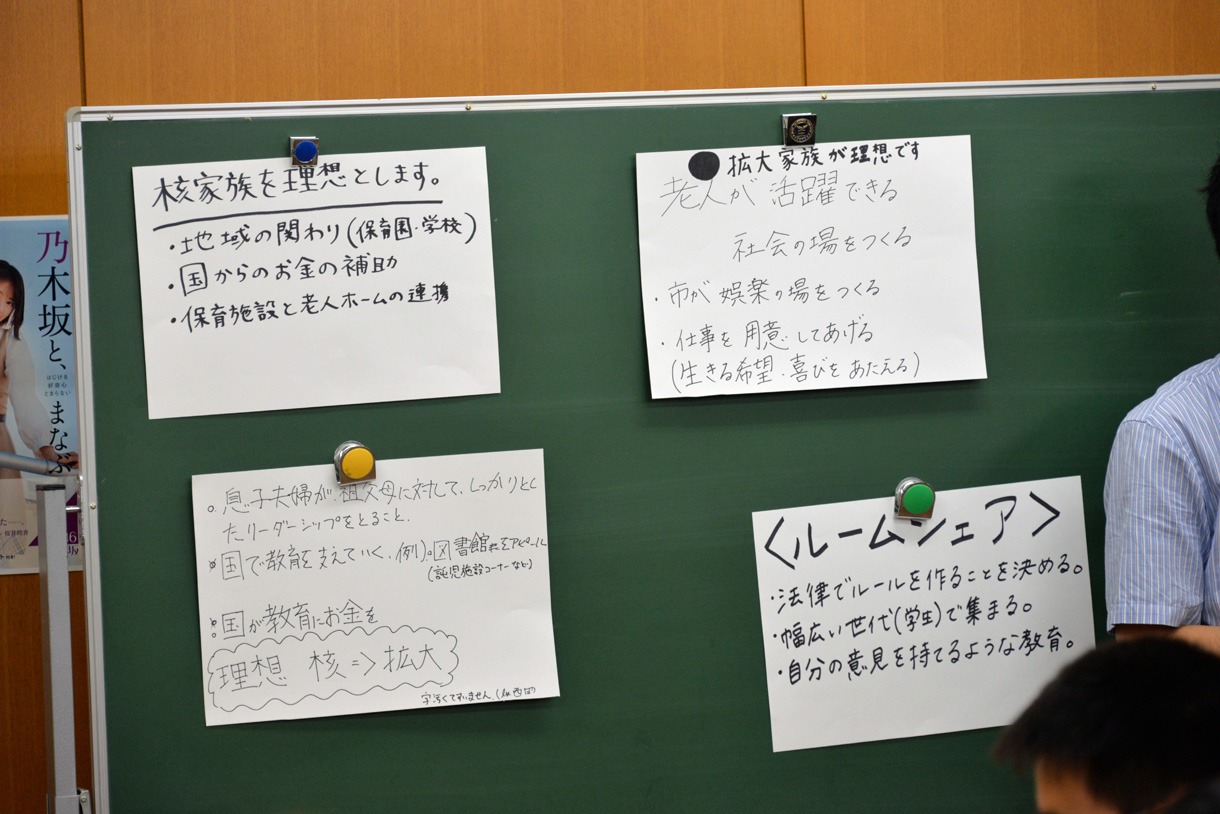 核家族を理想とします。
・地域の関わり(保育園・学校)
・国からのお金の補助
・保育施設と老人ホームの連携
●拡大家族が理想です
老人が活躍できる
社会の場をつくる
・市が娯楽の場をつくる
・仕事を用意してあげる
(生きる希望・喜びをあたえる)
。息子夫婦が、祖父母に対して、しっかりとし
たリーダーシップをとること.
国で教育を支えていく.例).図書館
(託児施設コーナーなど)
国が教育にお金を
理想 核=>拡大
字汚くてすいません.
<ルームシェア>
・法律でルールを作ることを決める。
・幅広い世代(学生)で集まる。
・自分の意見を持てるような教育。
乃木坂と、
まなぶ
はじける
好奇心
とまらない